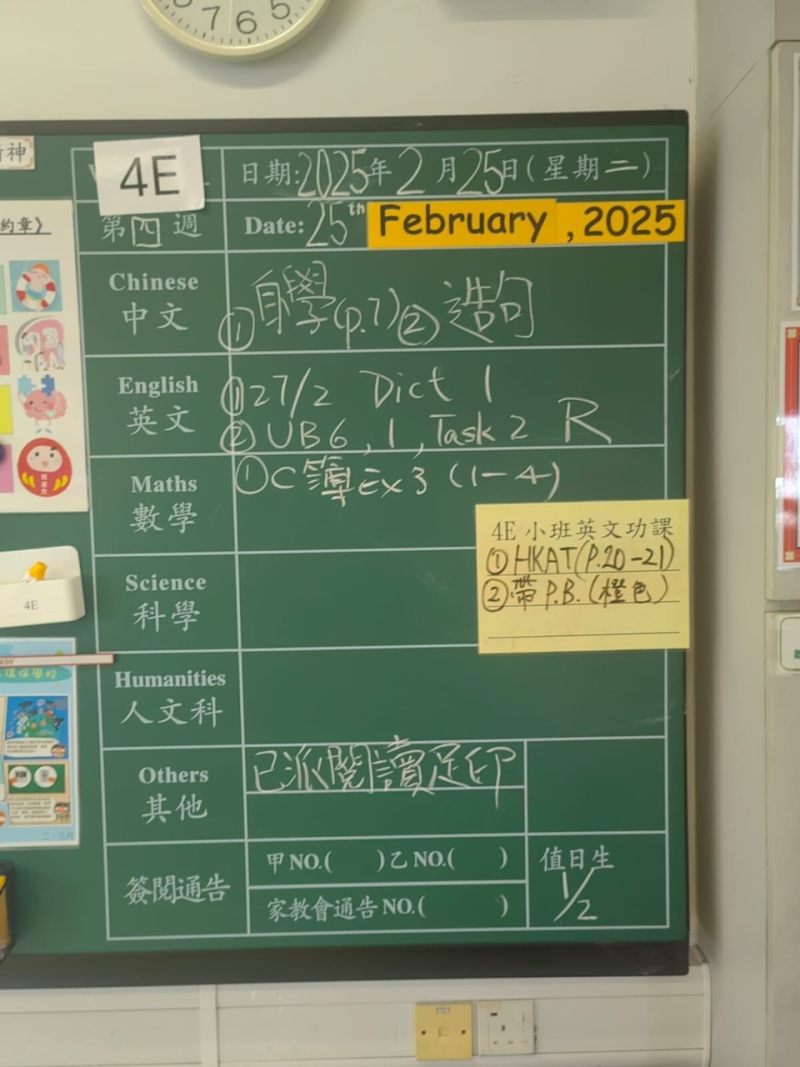 7 6 5
神
約章》
4E
日期:2025年2月25日(星期二)
第四週
Date: 25th February, 2025
Chinese
中文
①自學(p.7)②造句
English
英文
①27/2 Dict 1
②UB6, 1, Task 2 R
Maths
數學
①C簿Ex3 (1-4)
4E 小班英文功課
①HKAT(P.20-21)
②帶P.B.(橙色)
Science
科學
4E
Humanities
人文科
Others
其他
已派閱讀足印
簽閱通告
甲NO.( )乙NO.( )
家教會通告NO.( )
值日生
1/2
二·三月